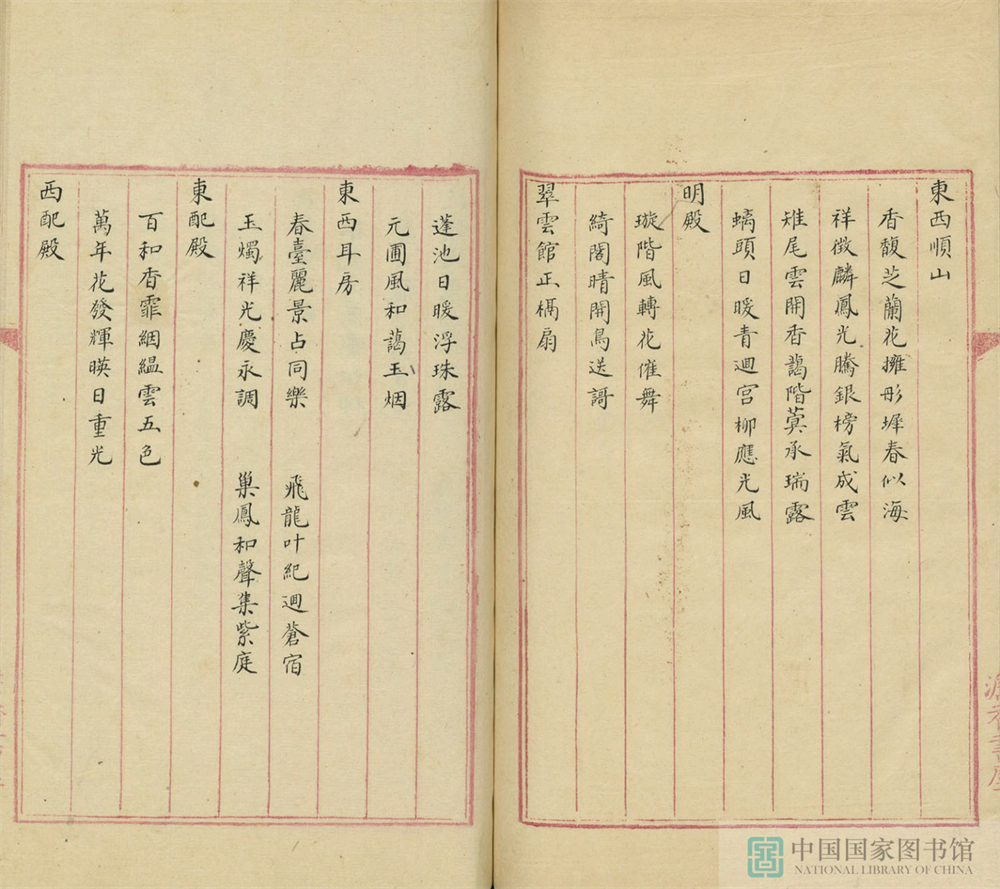 東西順山
香馥芝蘭花擁彤墀春似海
祥徴麟鳳光騰銀榜氣成雲
雉尾雲開香藹階蓂承瑞露
螭頭日暖青迴宫柳應光風
明殿
璇階風轉花催舞
綺閣晴開鳥送謌
翠雲館正槅扇
蓬池日暖浮珠露
元圃風和藹玉烟
東西耳房
春臺麗景占同樂 飛龍叶紀迴蒼宿
玉燭祥光慶永調 巢鳳和聲集紫庭
東配殿
百和香霏絪縕雲五色
萬年花發輝暎日重光
西配殿
中国国家图书馆
NATIONAL LIBRARY OF CHINA